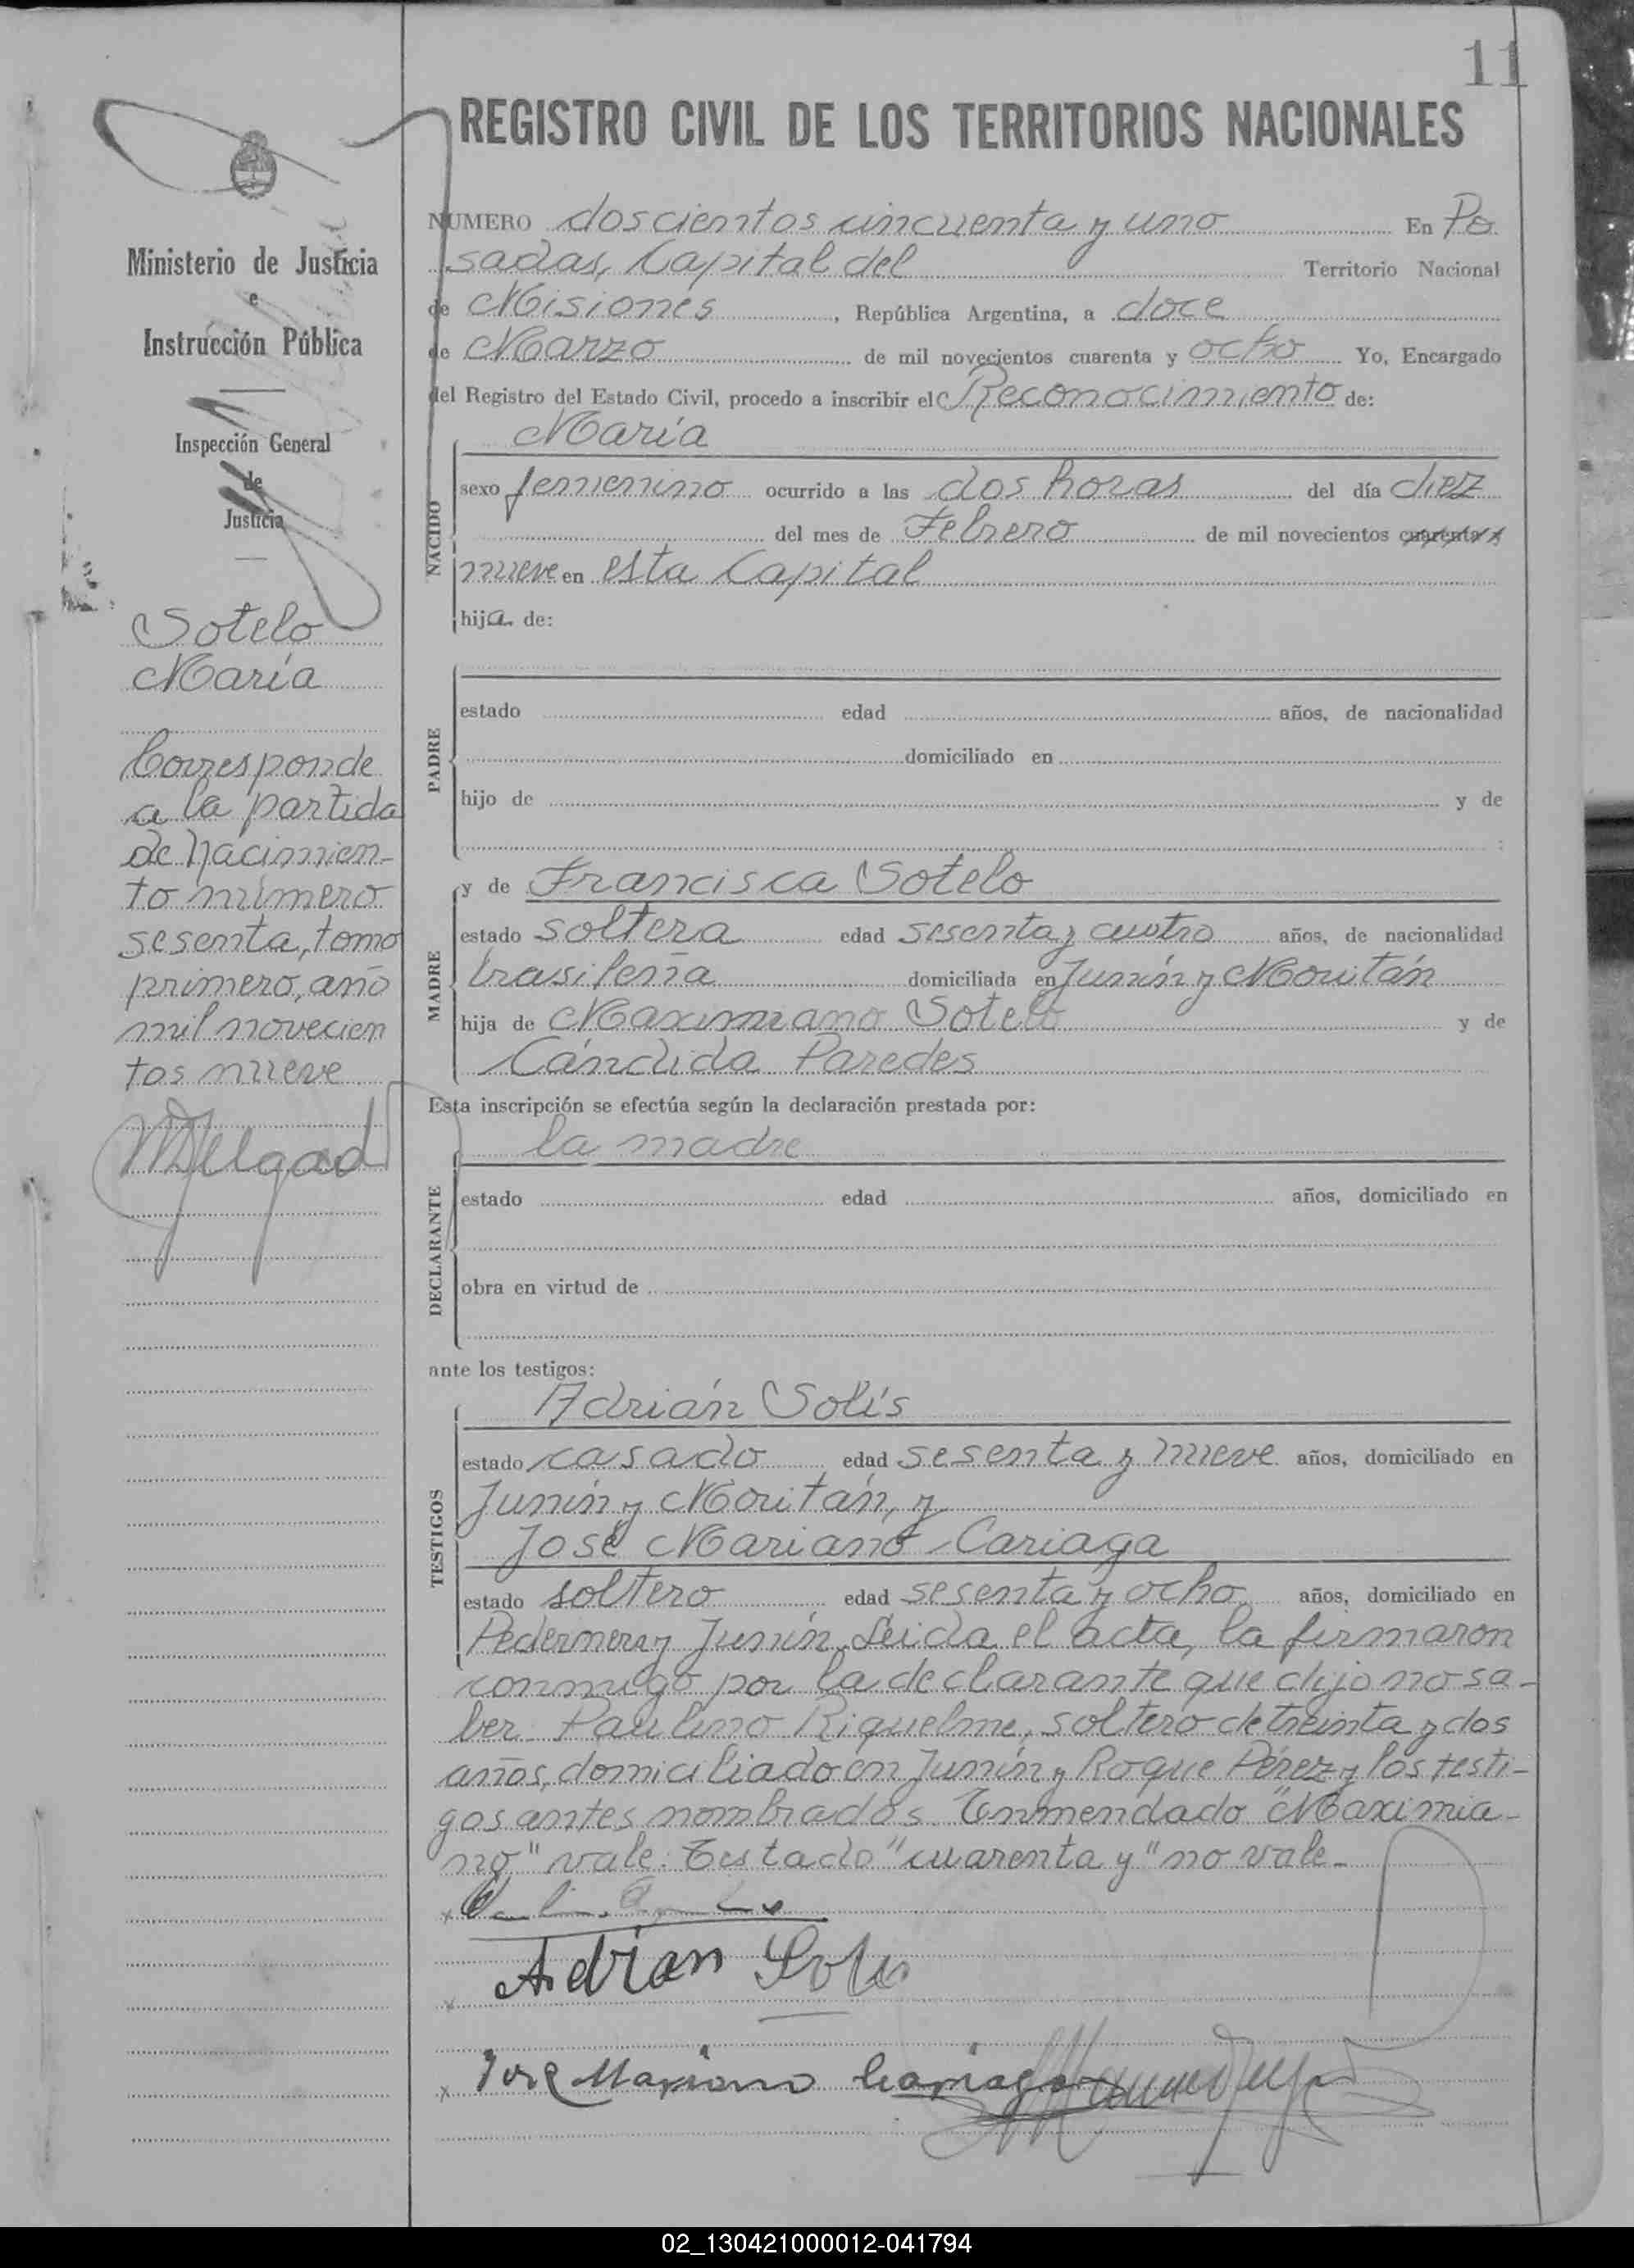 11
REGISTRO CIVIL DE LOS TERRITORIOS NACIONALES
Ministerio de Justicia
e
Instrucción Pública
Inspección General
de
Justicia
Sotelo
María
Corresponde
a la partida
de nacimien-
to número
sesenta, tomo
primero, año
mil novecien
tos nueve
NUMERO doscientos cincuenta y uno En Po
sadas, Capital del Territorio Nacional
de Misiones, República Argentina, a doce
de Marzo de mil novecientos cuarenta y ocho Yo, Encargado
del Registro del Estado Civil, procedo a inscribir el Reconocimiento de:
NACIDO
María
sexo femenino ocurrido a las dos horas del día diez
del mes de Febrero de mil novecientos cuarenta y
nueve en esta Capital
hija de:
PADRE
estado edad años, de nacionalidad
domiciliado en
hijo de y de
:
MADRE
y de Francisca Sotelo
estado soltera edad sesenta y cuatro años, de nacionalidad
brasileña domiciliada en Junín y Moritán
hija de Maximiano Sotelo y de
Cándida Paredes
Esta inscripción se efectúa según la declaración prestada por:
DECLARANTE
la madre
estado edad años, domiciliado en
obra en virtud de
ante los testigos:
TESTIGOS
Adrián Solís
estado casado edad sesenta y nueve años, domiciliado en
Junín y Moritán, y
José Mariano Cariaga
estado soltero edad sesenta y ocho años, domiciliado en
Pedernera y Junín. Leida el acta, la firmaron
conmigo por la declarante que dijo no sa-
ber Paulino Riquelme, soltero de treinta y dos
años, domiciliado en Junín y Roque Pérez y los testi-
gos antes nombrados. Enmendado "Maximia-
no" vale. Testado "cuarenta y" no vale-
x
Adrian Solis
x
x José Mariano Cariaga
02_130421000012-041794